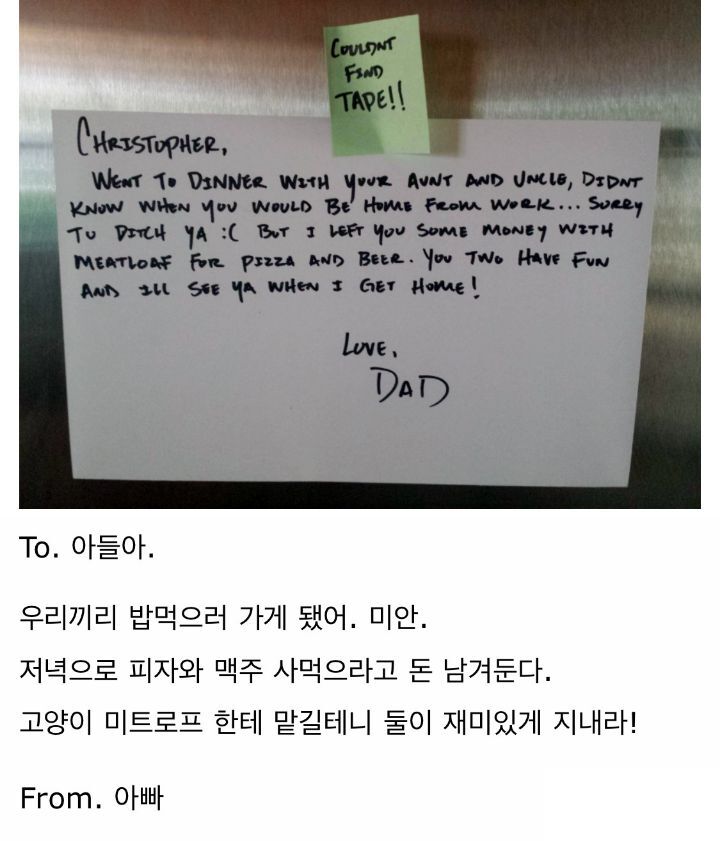 COULDNT
FIND
TAPE!!
CHRISTOPHER,
WENT TO DINNER WITH YOUR AUNT AND UNCLE, DIDNT
KNOW WHEN YOU WOULD BE HOME FROM WORK... SORRY
TO DITCH YA :( BUT I LEFT YOU SOME MONEY WITH
MEATLOAF FOR PIZZA AND BEER. YOU TWO HAVE FUN
AND ILL SEE YA WHEN I GET HOME!
LOVE,
DAD
To. 아들아.
우리끼리 밥먹으러 가게 됐어. 미안.
저녁으로 피자와 맥주 사먹으라고 돈 남겨둔다.
고양이 미트로프 한테 맡길테니 둘이 재미있게 지내라!
From. 아빠